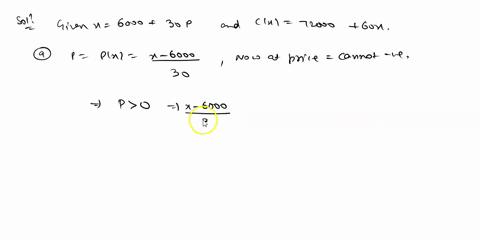 Solⁿ: Given x = 6000 + 30P and C(x) = 72000 + 60x.
(a) P = P(x) = x-6000 / 30 , Now at price = cannot -ve.
⇒ P > 0 ⇒ x-6000